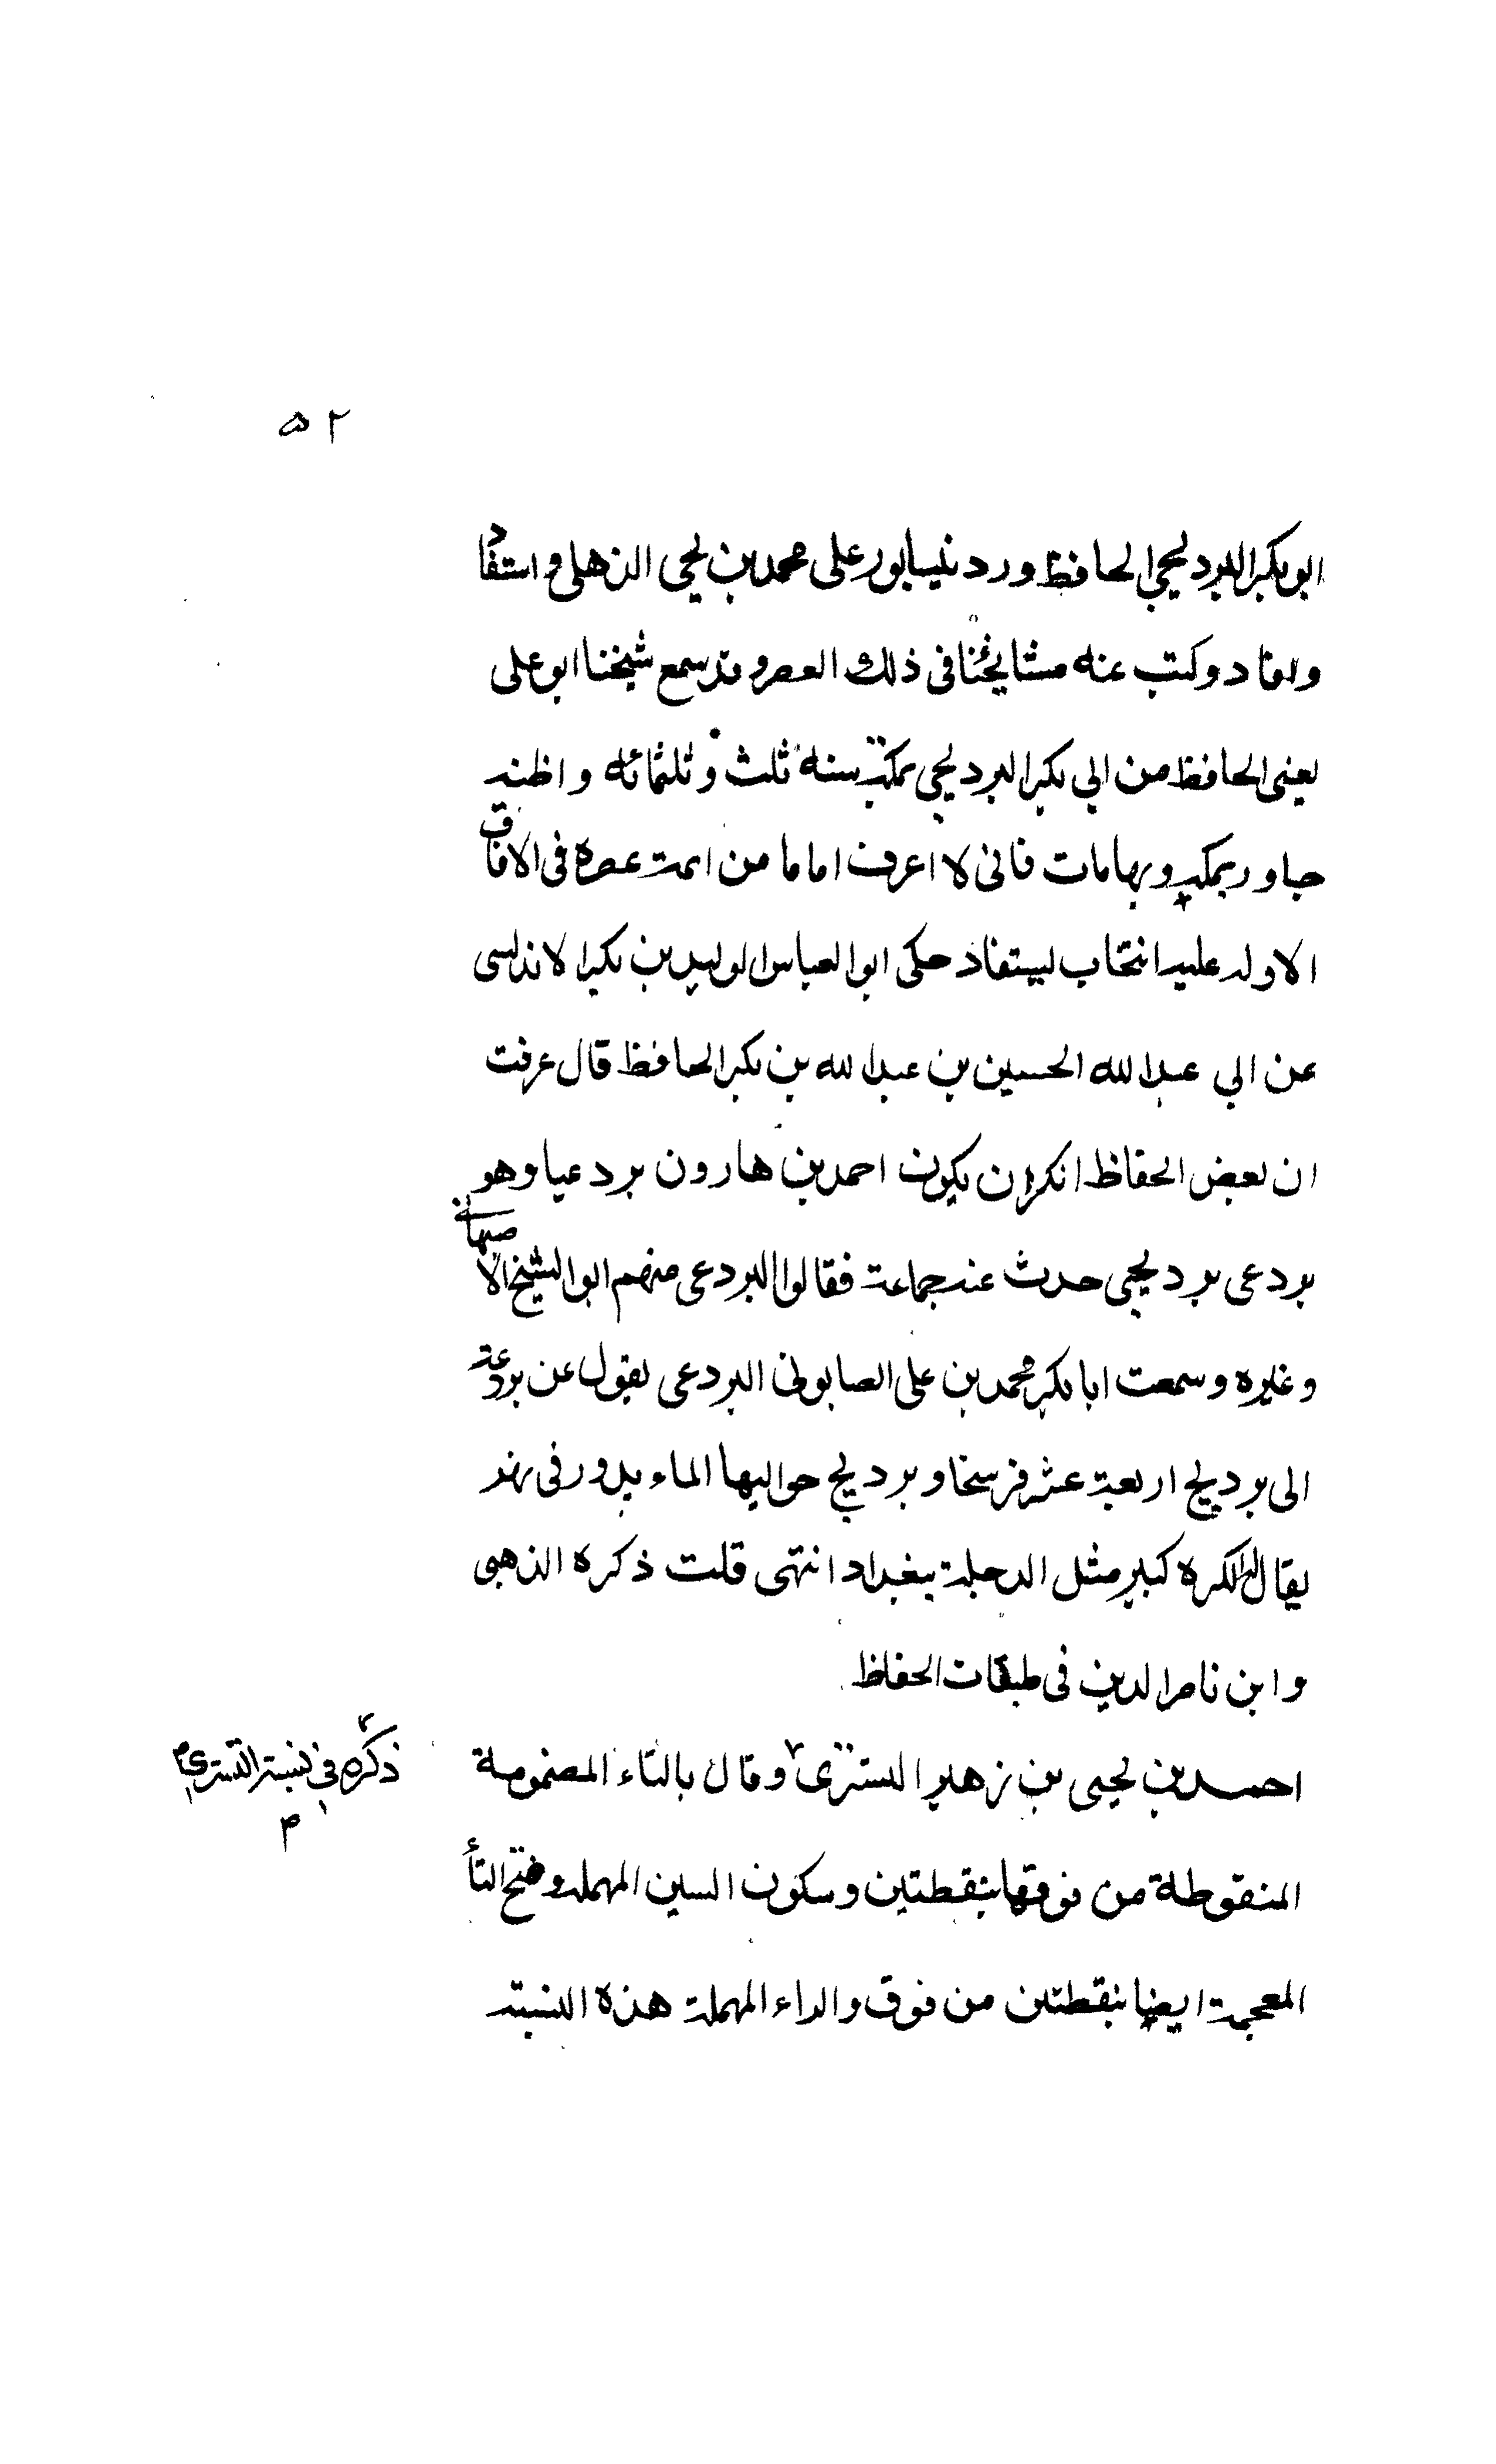 ٥٢
ابو بكر البرديجي الحافظ ورد نيسابور على محمد بن يحيى الذهلي واستفاد
وافاد وكتب عنه مشايخنا في ذلك العصر وقد سمع شيخنا ابو على
يعنى الحافظ من ابي بكر البرديجي بمكة سنة ثلث وثلثمائة واظنه
جاور بمكة وبها مات فانى لا اعرف اماما من ائمة عصره في الافاق
الا وله عليه انتخاب ليستفاد حكى ابو العباس الوليد بن بكر الاندلسى
عن ابي عبد الله الحسين بن عبد الله بن بكير الحافظ قال عرفت
ان بعض الحفاظ انكر ان يكون احمد بن هارون بردعيا وهو
بردعى برديجي حدث عنه جماعة فقالوا البردعى منهم ابو الشيخ الاصبهاني
وغيره وسمعت ابا بكر محمد بن على الصابونى البردعى يقول عن بردعة
الى برديج اربعة عشر فرسخا وبرديج حواليها الماء يدور فى نهر
يقال له الكره كبير مثل الدجلة ببغداد انتهى قلت ذكره الذهبى
وابن ناصر الدين فى طبقات الحفاظ
احمد بن يحيى بن زهير التسترى وقال بالتاء المضمومة
ذكره في نسبة التسترى
المنقوطة من فوقها بنقطتين وسكون السين المهملة وفتح التاء
المعجمة ايضا بنقطتين من فوق والراء المهملة هذه النسبة